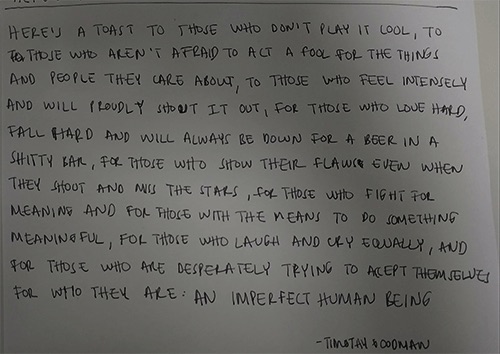 HERE'S A TOAST TO THOSE WHO DON'T PLAY IT COOL, TO
TO THOSE WHO AREN'T AFRAID TO ACT A FOOL FOR THE THINGS
AND PEOPLE THEY CARE ABOUT, TO THOSE WHO FEEL INTENSELY
AND WILL PROUDLY SHOUT IT OUT, FOR THOSE WHO LOVE HARD,
FALL HARD AND WILL ALWAYS BE DOWN FOR A BEER IN A
SHITTY BAR, FOR THOSE WHO SHOW THEIR FLAWS EVEN WHEN
THEY SHOOT AND MISS THE STARS, FOR THOSE WHO FIGHT FOR
MEANING AND FOR THOSE WITH THE MEANS TO DO SOMETHING
MEANINGFUL, FOR THOSE WHO LAUGH AND CRY EQUALLY, AND
FOR THOSE WHO ARE DESPERATELY TRYING TO ACEPT THEMSELVES
FOR WHO THEY ARE: AN IMPERFECT HUMAN BEING
-TIMOTHY GOODMAN